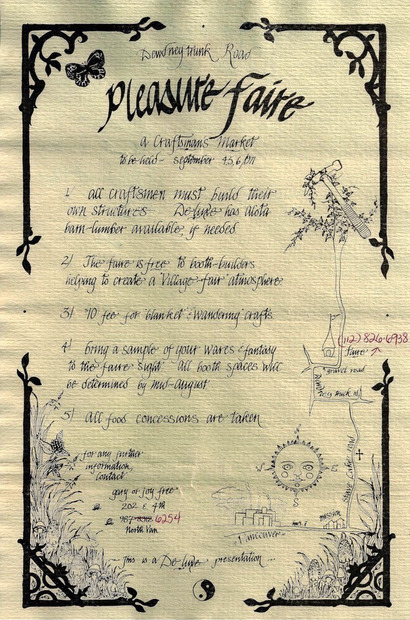 Dewdney trunk Road
Pleasure Faire
a Craftsman's Market
to be held - September 4,5,6, 1971
1. all craftsmen must build their
own structures De Luxe has alota
barn-lumber available if needed
2/ The faire is free to booth-builders
helping to create a Village-fair atmosphere
3/ $10 fee for blanket & wandering crafts
4/ bring a sample of your wares & fantasy
to the faire sight. all booth spaces will
be determined by mid-August
5/ all food concessions are taken
for any further
information
contact
gary or joy free
202 E 4th
987- 6254
North Van
this is a De Luxe presentation
(112) 826-6938
faire ↗
gravel road
Dewdney trunk rd
Stave Lake road
mission
Vancouver
N
S